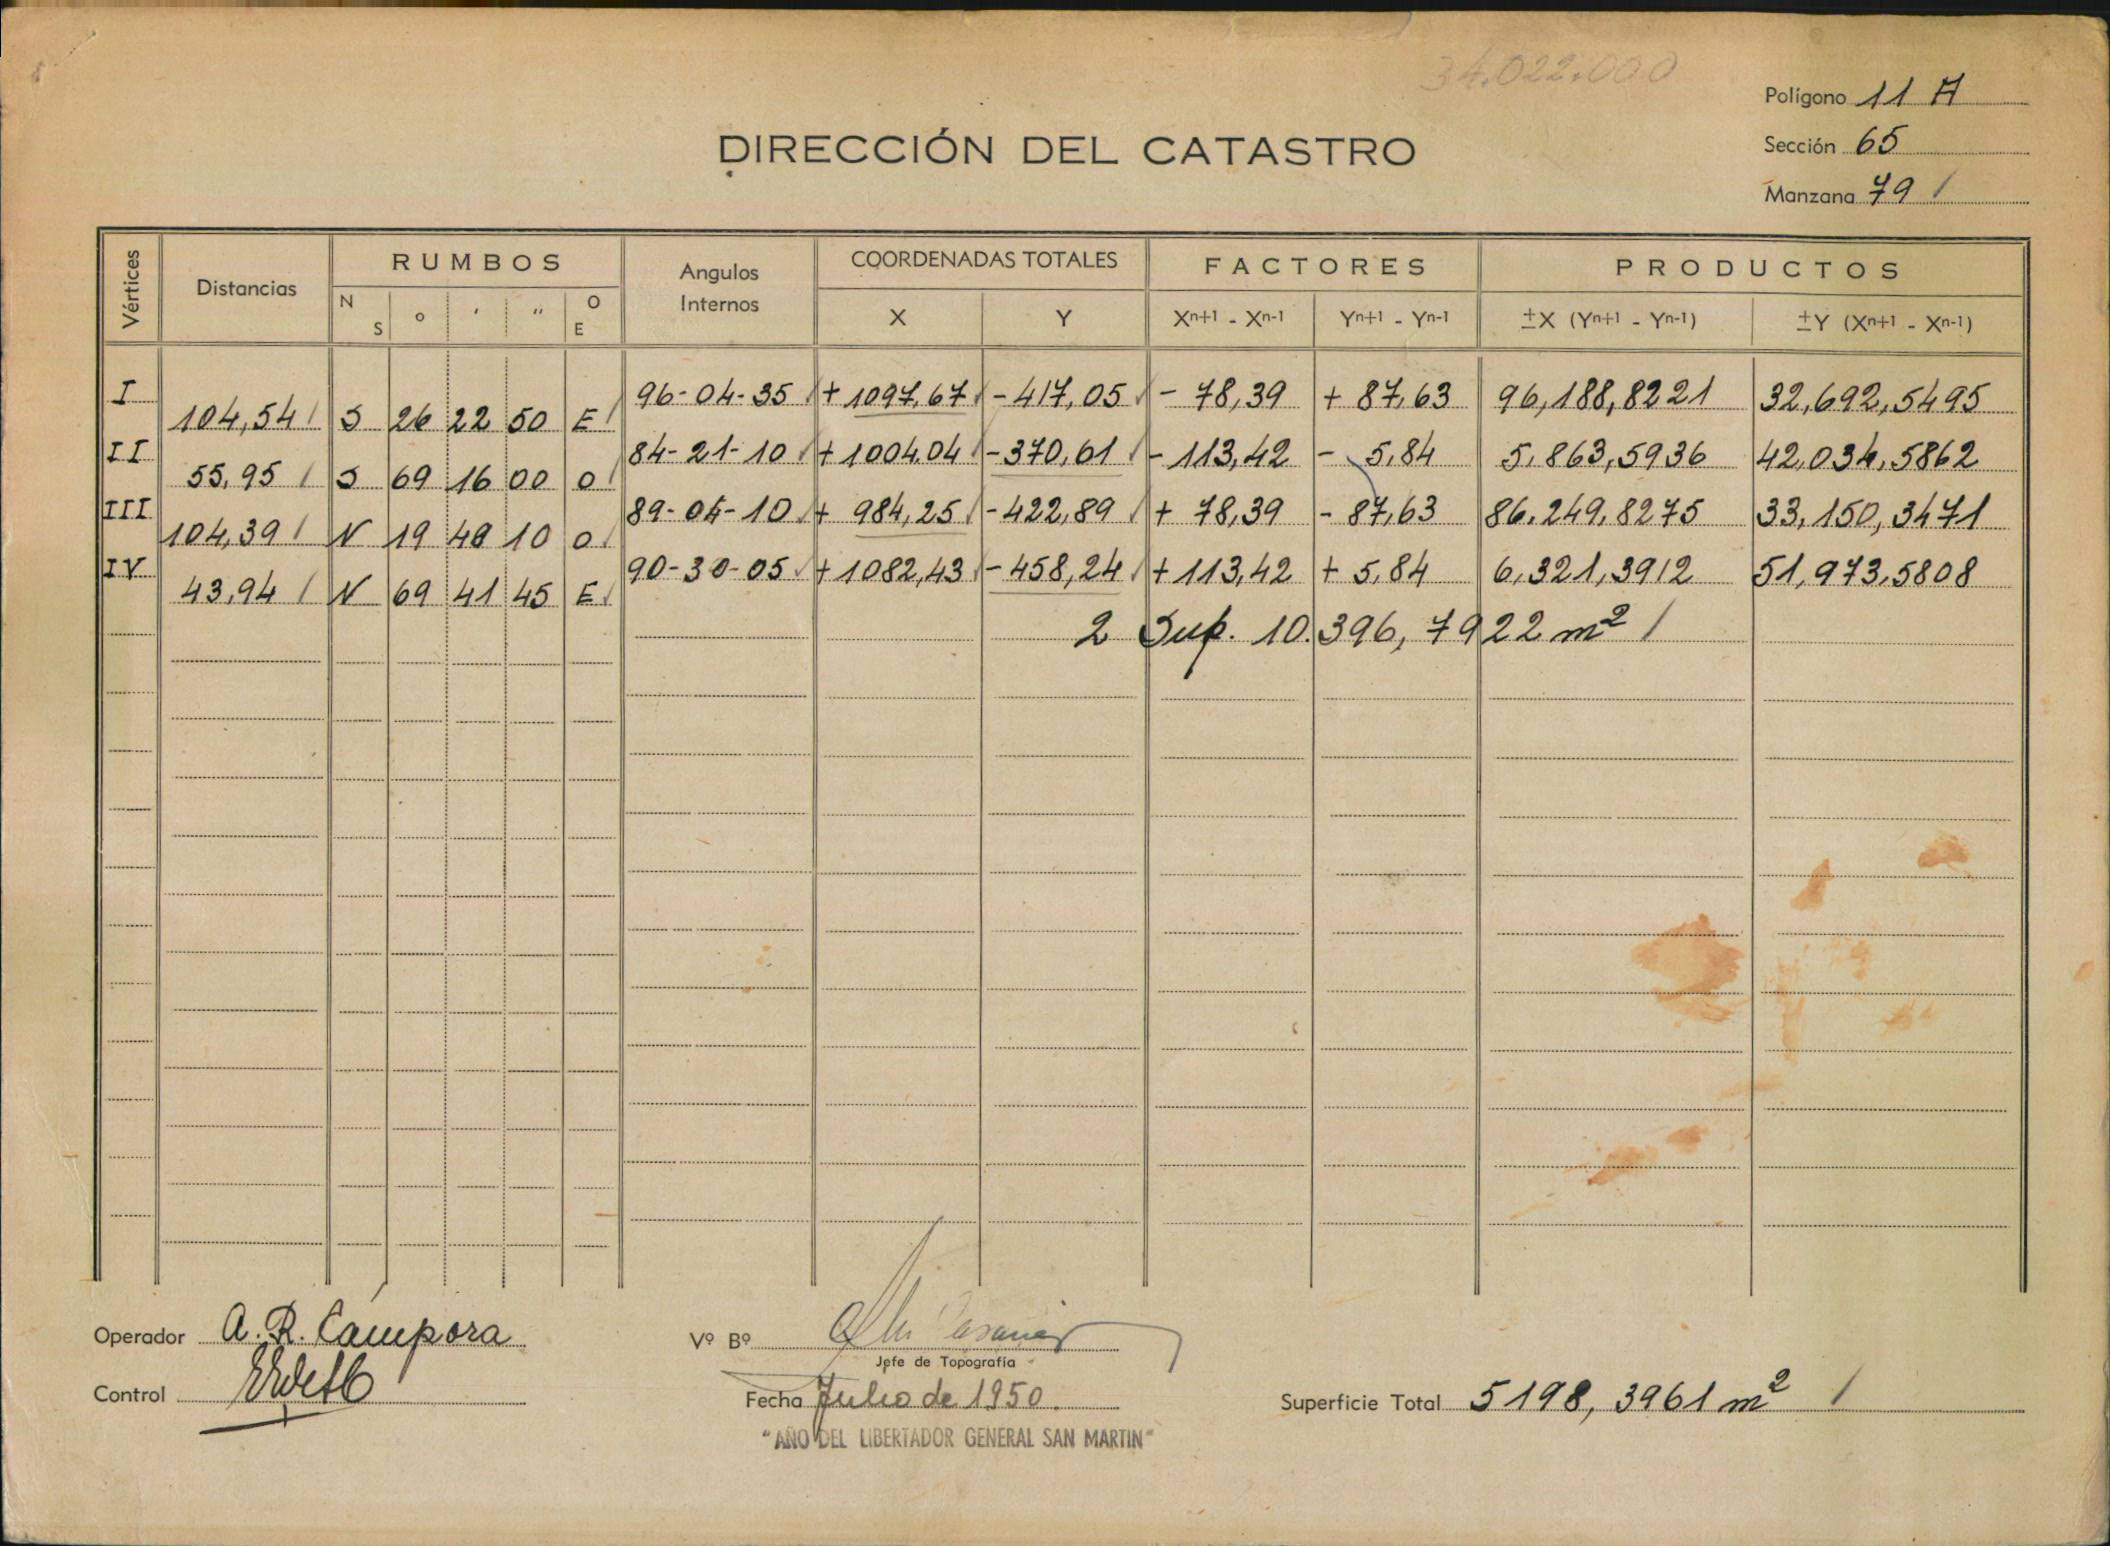 34.022.000
Polígono 11 A
Sección 65
Manzana 79 /
DIRECCIÓN DEL CATASTRO
Vértices Distancias RUMBOS Angulos Internos COORDENADAS TOTALES FACTORES PRODUCTOS
N S o ' " O E X Y Xn+1 - Xn-1 Yn+1 - Yn-1 ±X (Yn+1 - Yn-1) ±Y (Xn+1 - Xn-1)
I 96-04-35 / + 1097,67 / - 417,05 / - 78,39 + 87,63 96,188,8221 32,692,5495
104,54 / S 26 22 50 E /
II 84-21-10 / + 1004.04 / - 370,61 / - 113,42 - 5,84 5.863,5936 42.034,5862
55,95 / S 69 16 00 O /
III 89-04-10 / + 984,25 / - 422,89 / + 78,39 - 87,63 86.249,8275 33,150,3471
104,39 / N 19 48 10 O /
IV 90-30-05 / + 1082,43 / - 458,24 / + 113,42 + 5,84 6,321,3912 51,973,5808
43,94 / N 69 41 45 E /
2 Sup. 10.396,7922 m² /
Operador A. R. Cámpora
Vº Bº
Jefe de Topografía
Control
Fecha Julio de 1950.
Superficie Total 5198,3961 m² /
"AÑO DEL LIBERTADOR GENERAL SAN MARTIN"